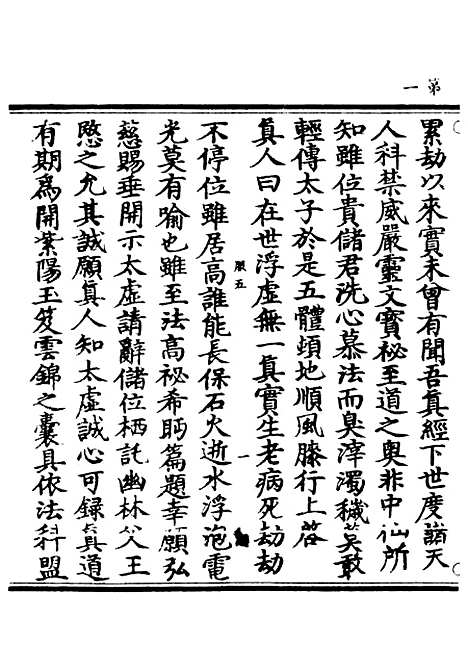 第一
累劫以來實未曾有聞吾真經下世度諸天
人科禁威嚴靈文寶秘至道之奥非中仙所
知雖位貴儲君洗心慕法而臭滓濁穢莫敢
輕傳太子於是五體頓地順風膝行上荅
真人曰在世浮虚無一真實生老病死劫劫
服五
一
不停位雖居高誰能長保石火逝水浮泡電
光莫有喻也雖至法高祕希眄篇題幸願弘
慈賜垂開示太虚請辭儲位栖託幽林父王
愍之允其誠願真人知太虚誠心可録真道
有期爲開紫陽玉笈雲錦之囊具依法科盟